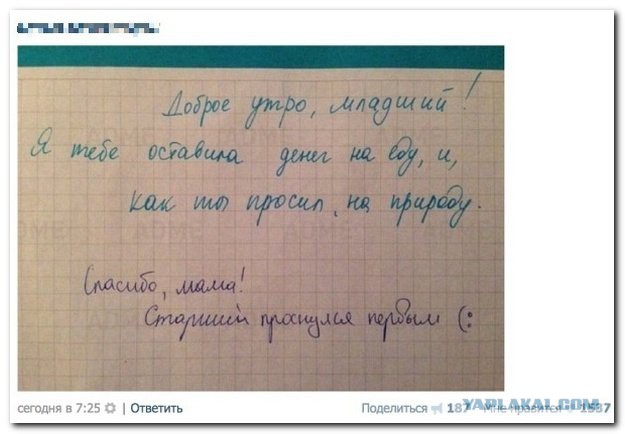 Доброе утро, младший!
Я тебе оставила денег на еду, и,
как ты просил, на природу.
Спасибо, мама!
Старший проснулся первым (:
сегодня в 7:25 | Ответить
Поделиться 187 Мне нравится 1537
YAPLAKAL.COM